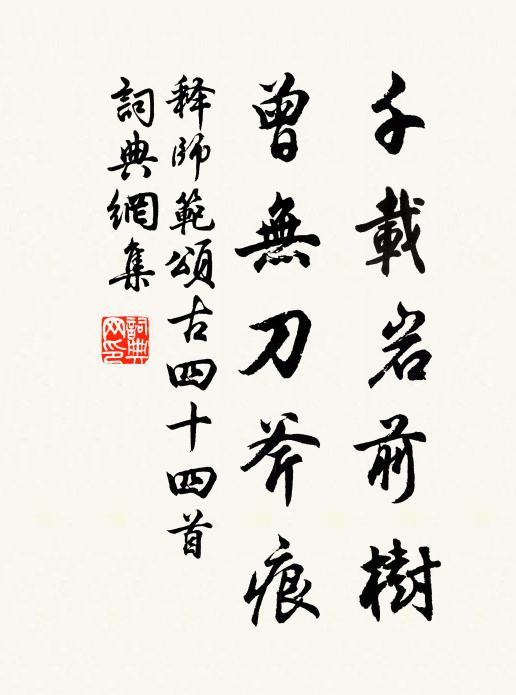 千載岩前樹
曾無刀斧痕
释師範頌古四十四首
詞典網集
詞典网印